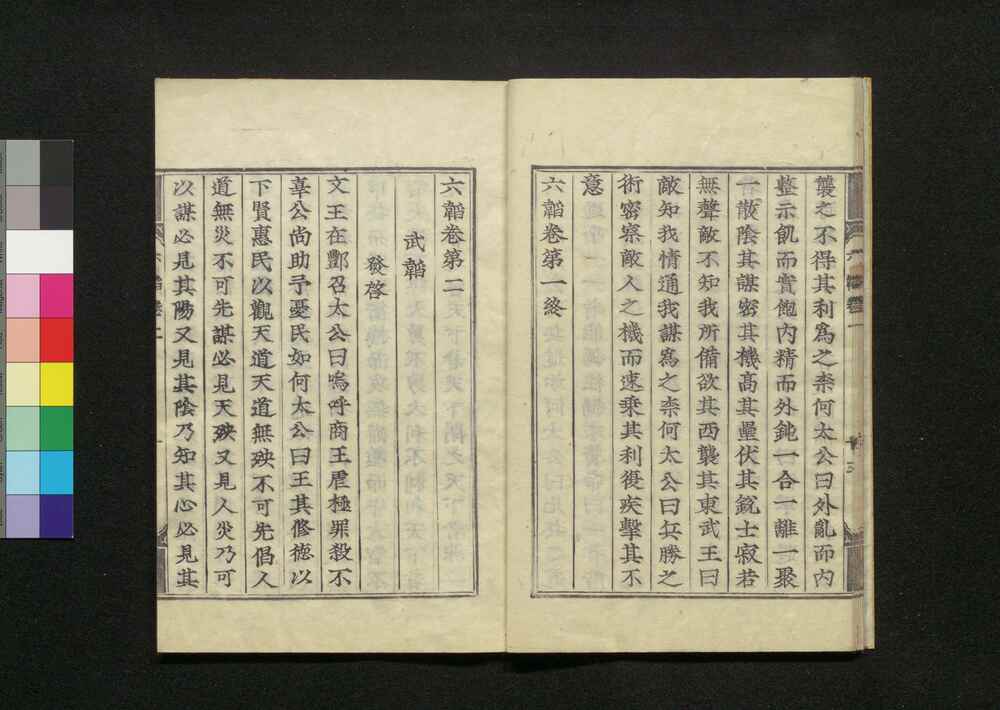 襲之不得其利爲之柰何太公曰外亂而內
整示飢而實飽內精而外鈍一合一離一聚
一散陰其謀密其機高其壘伏其銳士寂若
無聲敵不知我所備欲其西襲其東武王曰
敵知我情通我謀爲之柰何太公曰兵勝之
術密察敵人之機而速乗其利復疾擊其不
意
六韜卷第一終
六韜卷第二
武韜
發啓
文王在酆召太公曰嗚呼商王虐極罪殺不
辜公尚助予憂民如何太公曰王其修德以
下賢惠民以觀天道天道無殃不可先倡人
道無災不可先謀必見天殃又見人災乃可
以謀必見其陽又見其陰乃知其心必見其
六韜卷二